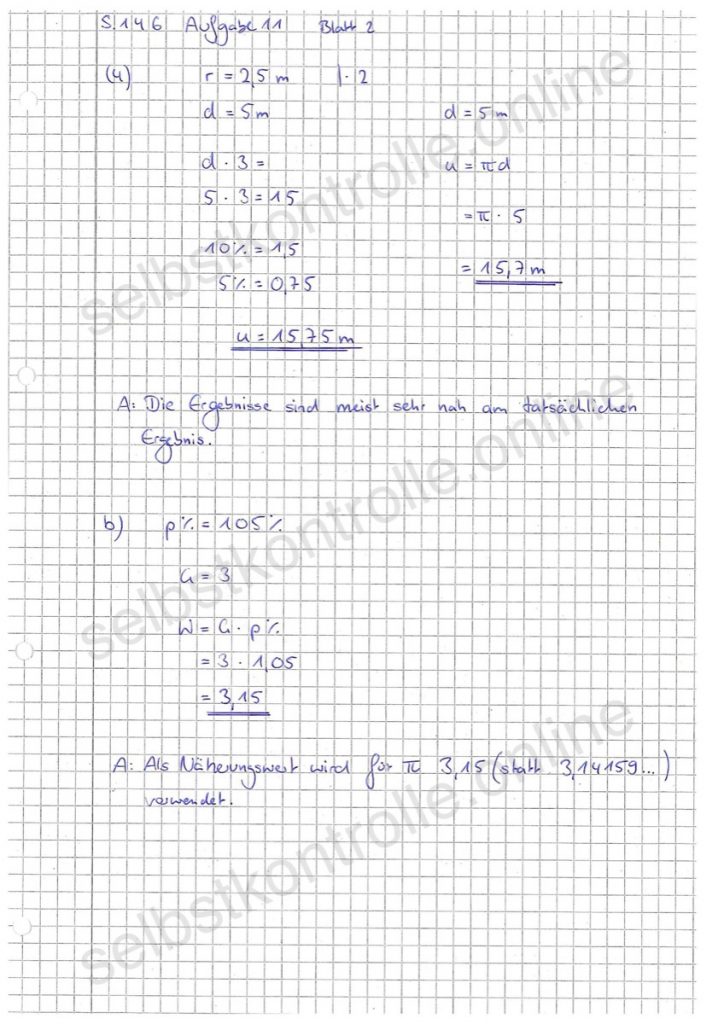 S. 146 Aufgabe 11 Blatt 2
(4) r = 2,5 m | · 2
d = 5 m
d · 3 =
5 · 3 = 15
10 % = 1,5
5 % = 0,75
u = 15,75 m
d = 5 m
u = π d
= π · 5
= 15,7 m
A: Die Ergebnisse sind meist sehr nah am tatsächlichen
Ergebnis.
b) p % = 105 %
G = 3
W = G · p %
= 3 · 1,05
= 3,15
A: Als Näherungswert wird für π 3,15 (statt 3,14159...)
verwendet.
selbstkontrolle.online
selbstkontrolle.online
selbstkontrolle.online